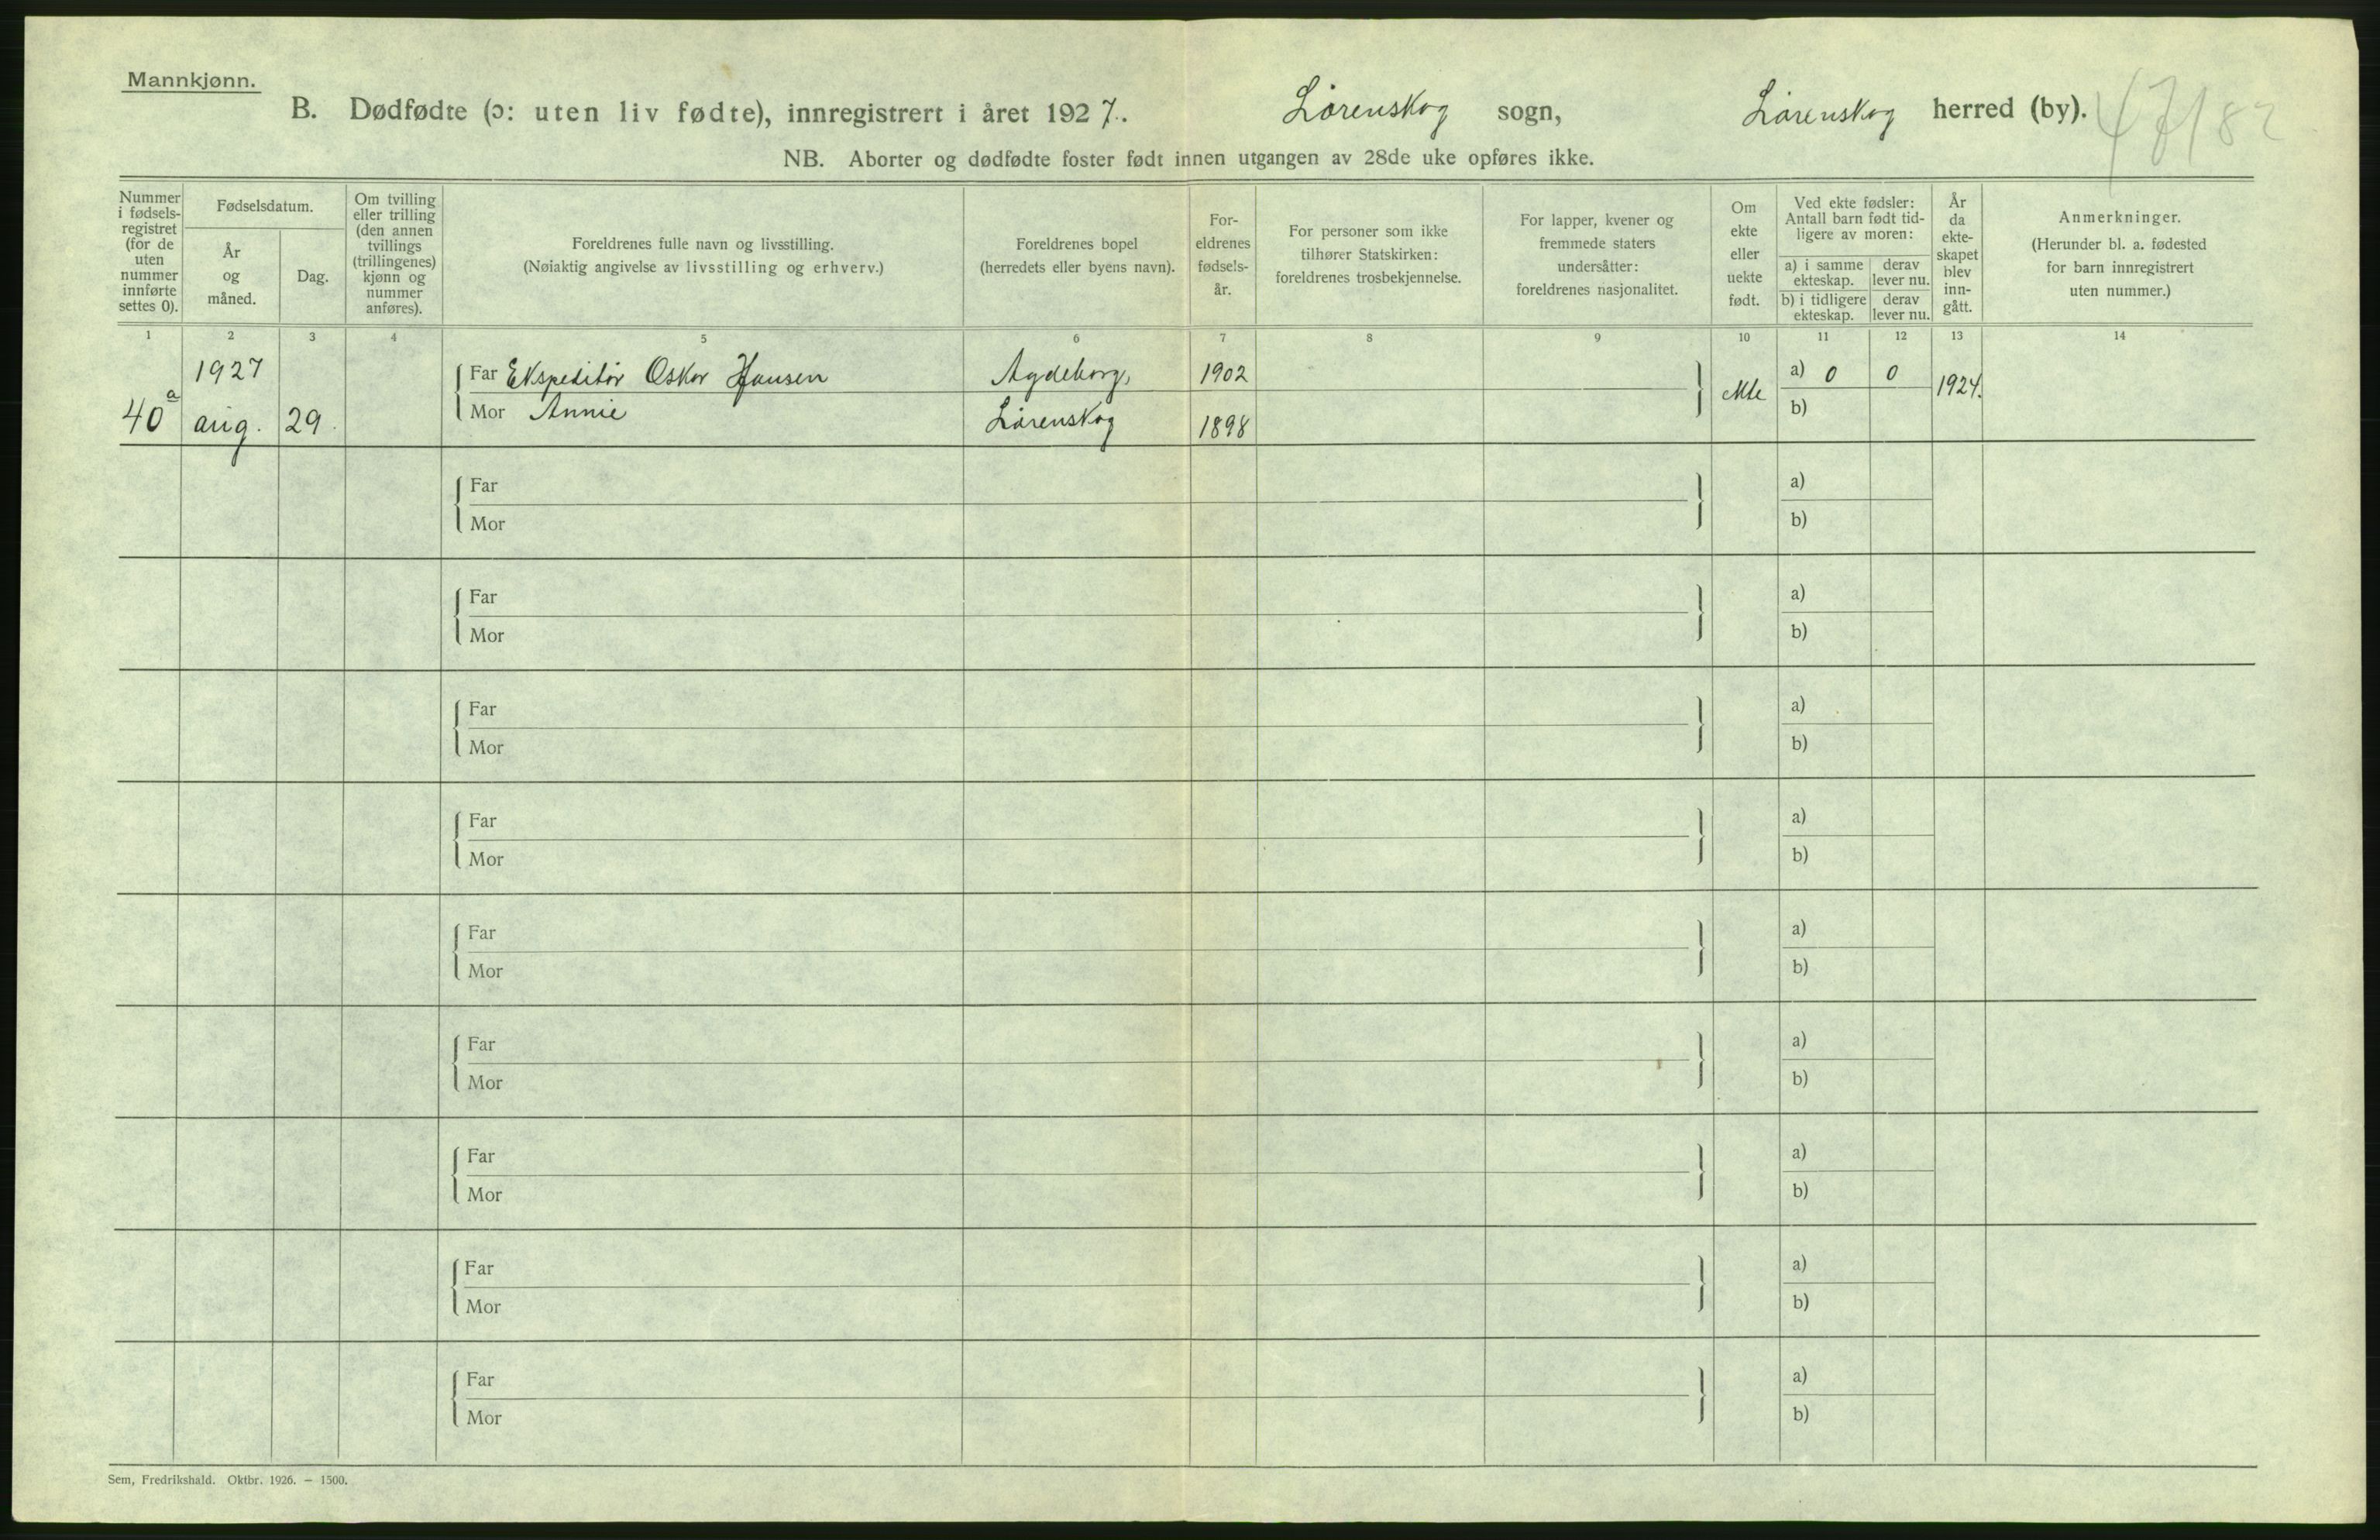 Mannkjønn.
B. Dødfødte (ɔ: uten liv fødte), innregistrert i året 1927. Lørenskog sogn, Lørenskog herred (by). 47/82
NB. Aborter og dødfødte foster født innen utgangen av 28de uke opføres ikke.
Nummer i fødsels-registret (for de uten nummer innførte settes 0).
Fødselsdatum.
År og måned.
Dag.
Om tvilling eller trilling (den annen tvillings (trillingenes) kjønn og nummer anføres).
Foreldrenes fulle navn og livsstilling.
(Nøiaktig angivelse av livsstilling og erhverv.)
Foreldrenes bopel
(herredets eller byens navn).
For-eldrenes fødsels-år.
For personer som ikke tilhører Statskirken: foreldrenes trosbekjennelse.
For lapper, kvener og fremmede staters undersåtter: foreldrenes nasjonalitet.
Om ekte eller uekte født.
Ved ekte fødsler: Antall barn født tid-ligere av moren:
a) i samme ekteskap. derav lever nu.
b) i tidligere ekteskap. derav lever nu.
År da ekte-skapet blev inn-gått.
Anmerkninger.
(Herunder bl. a. fødested for barn innregistrert uten nummer.)
1 2 3 4 5 6 7 8 9 10 11 12 13 14
1927 Far Ekspeditør Oskar Hansen 1902 a) 0 0
40a aug. 29. Mor Annie Lørenskog 1898 ekte b) 1924.
Far a)
Mor b)
Far a)
Mor b)
Far a)
Mor b)
Far a)
Mor b)
Far a)
Mor b)
Far a)
Mor b)
Far a)
Mor b)
Far a)
Mor b)
Far a)
Mor b)
Sem, Fredrikshald. Oktbr. 1926. — 1500.